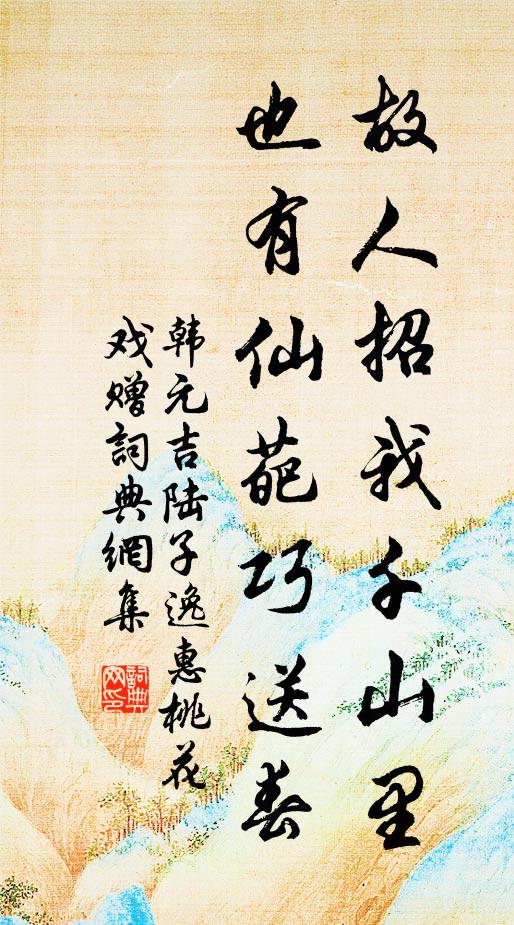 故人招我千山里
也有仙葩巧送春
韩元吉陆子逸惠桃花
戏赠詞典網集
詞典網印